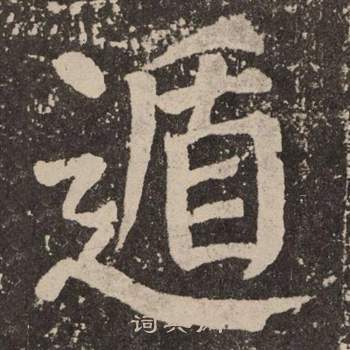 遁
词典网